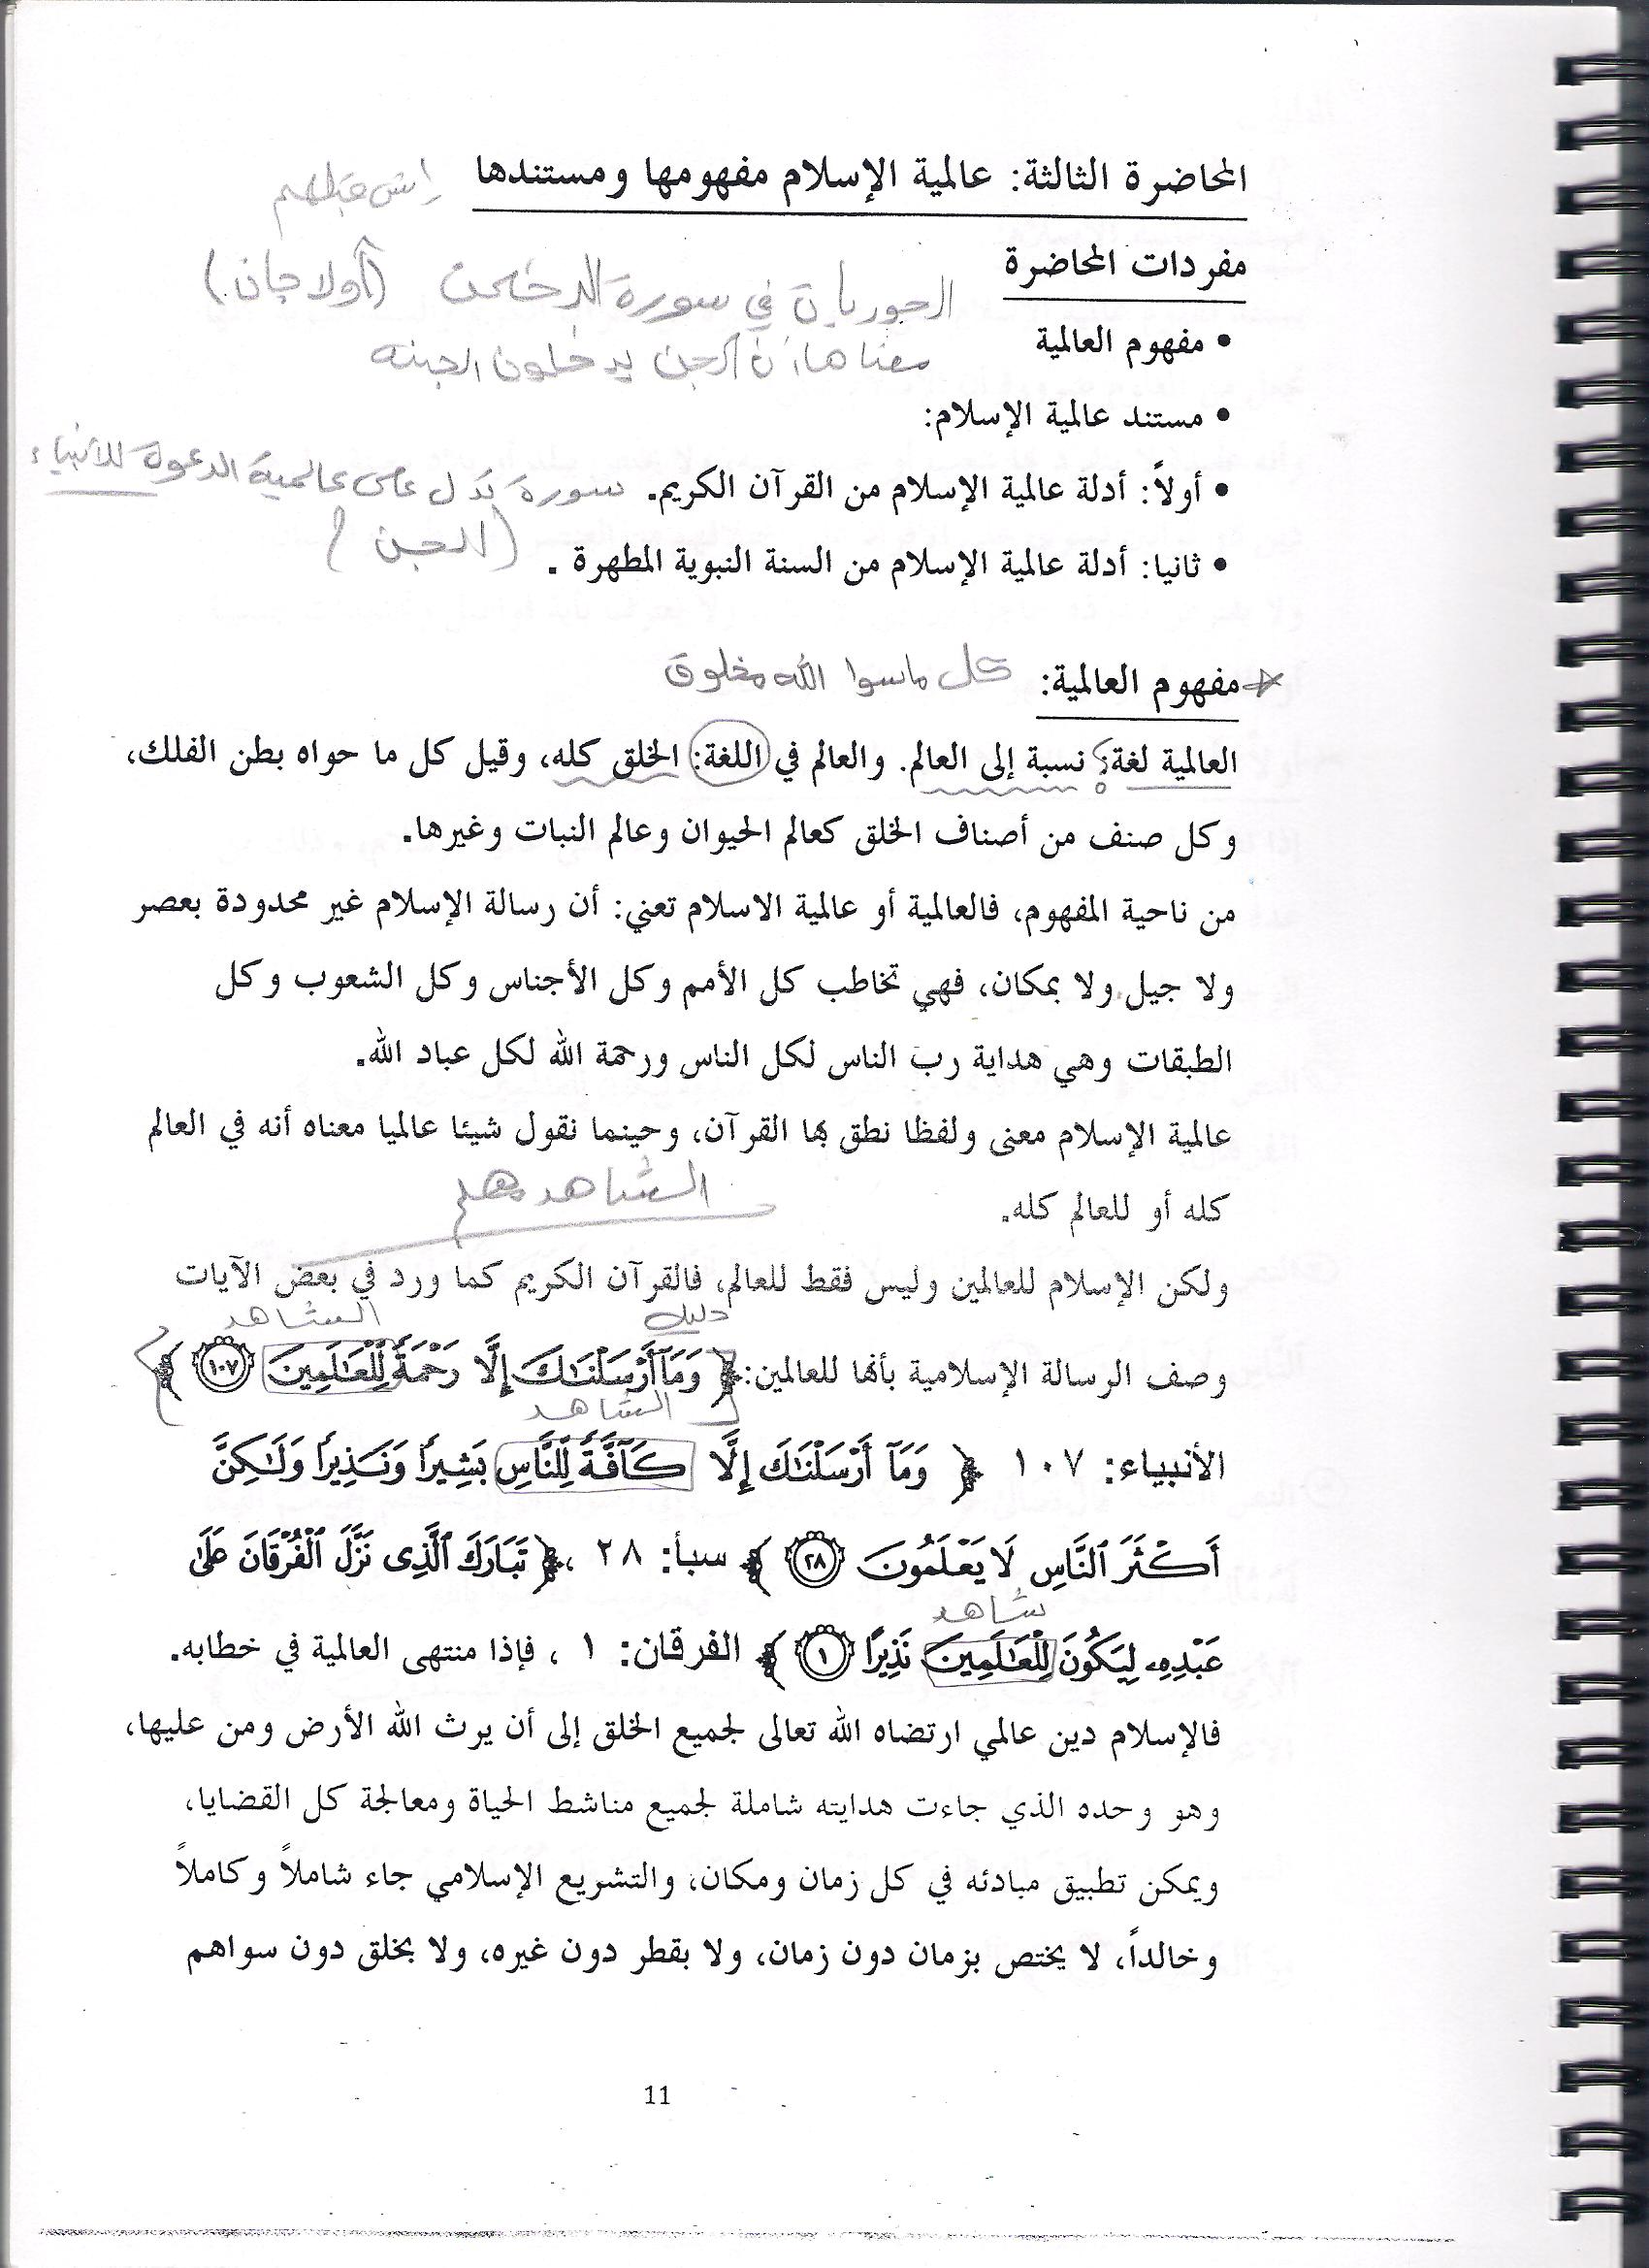 المحاضرة الثالثة: عالمية الإسلام مفهومها ومستندها
إنس قبلهم
مفردات المحاضرة
الحوريات في سورة الرحمن (أولا جان)
• مفهوم العالمية
معناها أن الجن يدخلون الجنه
• مستند عالمية الإسلام:
• أولاً: أدلة عالمية الإسلام من القرآن الكريم.
سورة تدل على عالمية الدعوة للأنبياء
(الجن)
• ثانيا: أدلة عالمية الإسلام من السنة النبوية المطهرة .
مفهوم العالمية: كل ماسوا الله مخلوق
العالمية لغة: نسبة إلى العالم. والعالم في اللغة: الخلق كله، وقيل كل ما حواه بطن الفلك،
وكل صنف من أصناف الخلق كعالم الحيوان وعالم النبات وغيرها.
من ناحية المفهوم، فالعالمية أو عالمية الاسلام تعني: أن رسالة الإسلام غير محدودة بعصر
ولا جيل ولا بمكان، فهي تخاطب كل الأمم وكل الأجناس وكل الشعوب وكل
الطبقات وهي هداية رب الناس لكل الناس ورحمة الله لكل عباد الله.
عالمية الإسلام معنى ولفظا نطق بها القرآن، وحينما نقول شيئا عالميا معناه أنه في العالم
كله أو للعالم كله.
الشاهد مهم
ولكن الإسلام للعالمين وليس فقط للعالم، فالقرآن الكريم كما ورد في بعض الآيات
دليل
الشاهد
وصف الرسالة الإسلامية بأنها للعالمين: ﴿ وَمَآ أَرْسَلْنَـٰكَ إِلَّا رَحْمَةً لِّلْعَـٰلَمِينَ ١٠٧ ﴾
الشاهد
الأنبياء: ١٠٧ ﴿ وَمَآ أَرْسَلْنَـٰكَ إِلَّا كَآفَّةً لِّلنَّاسِ بَشِيرًا وَنَذِيرًا وَلَـٰكِنَّ
أَكْثَرَ ٱلنَّاسِ لَا يَعْلَمُونَ ٢٨ ﴾ سبأ: ٢٨ ، ﴿ تَبَارَكَ ٱلَّذِى نَزَّلَ ٱلْفُرْقَانَ عَلَىٰ
شاهد
عَبْدِهِۦ لِيَكُونَ لِلْعَـٰلَمِينَ نَذِيرًا ١ ﴾ الفرقان: ١ ، فإذا منتهى العالمية في خطابه.
فالإسلام دين عالمي ارتضاه الله تعالى لجميع الخلق إلى أن يرث الله الأرض ومن عليها،
وهو وحده الذي جاءت هدايته شاملة لجميع مناشط الحياة ومعالجة كل القضايا،
ويمكن تطبيق مبادئه في كل زمان ومكان، والتشريع الإسلامي جاء شاملاً وكاملاً
وخالداً، لا يختص بزمان دون زمان، ولا بقطر دون غيره، ولا بخلق دون سواهم
11